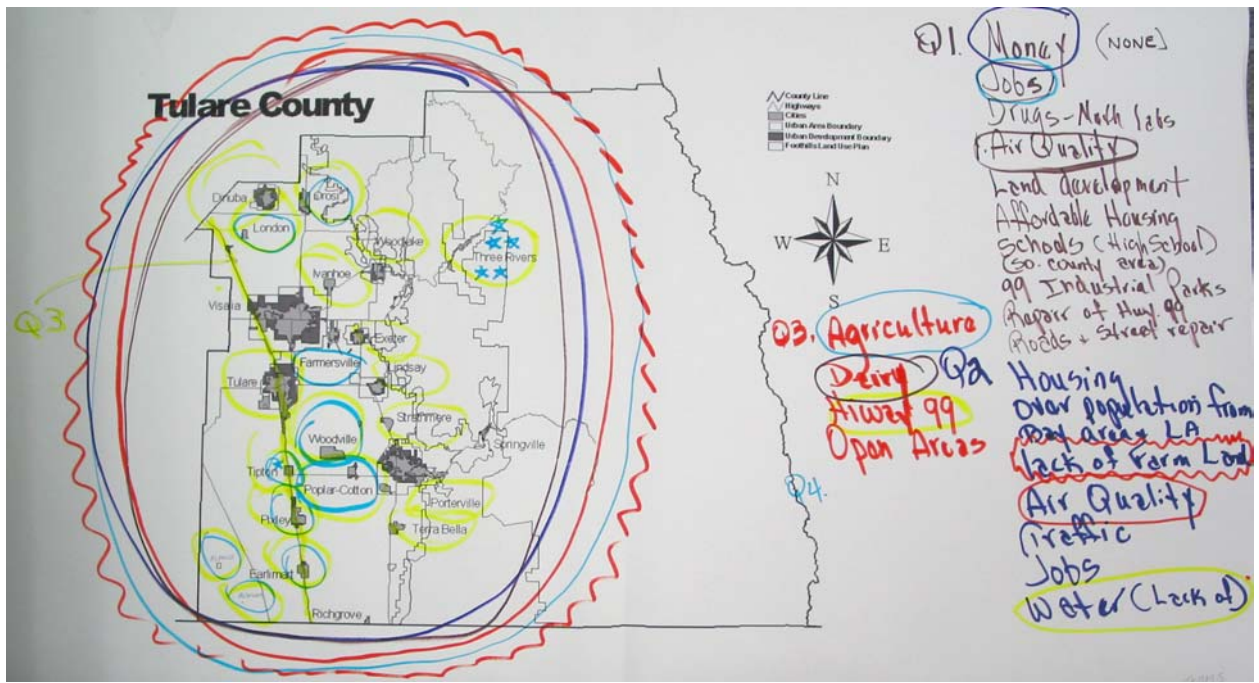 Tulare County
County Line
Highways
Cities
Urban Area Boundary
Urban Development Boundary
Foothills Land Use Plan
N
W
E
S
Dinuba
Orosi
London
Woodlake
Three Rivers
Ivanhoe
Visalia
Exeter
Farmersville
Lindsay
Tulare
Strathmore
Woodville
Springville
Tipton
Poplar-Cotton
Porterville
Pixley
Terra Bella
Earlimart
Richgrove
Q3
Q1. Money (NONE)
Jobs
Drugs-Meth labs
Air Quality
Land development
Affordable Housing
Schools (High School)
(so. county area)
99 Industrial Parks
Repair of Hwy. 99
Roads + Street repair
Q3. Agriculture
Dairy
Hiway 99
Open Areas
Q2 Housing
Over population from
Bay area + LA
lack of Farm Land
Air Quality
Traffic
Jobs
Water (Lack of)
Q4.